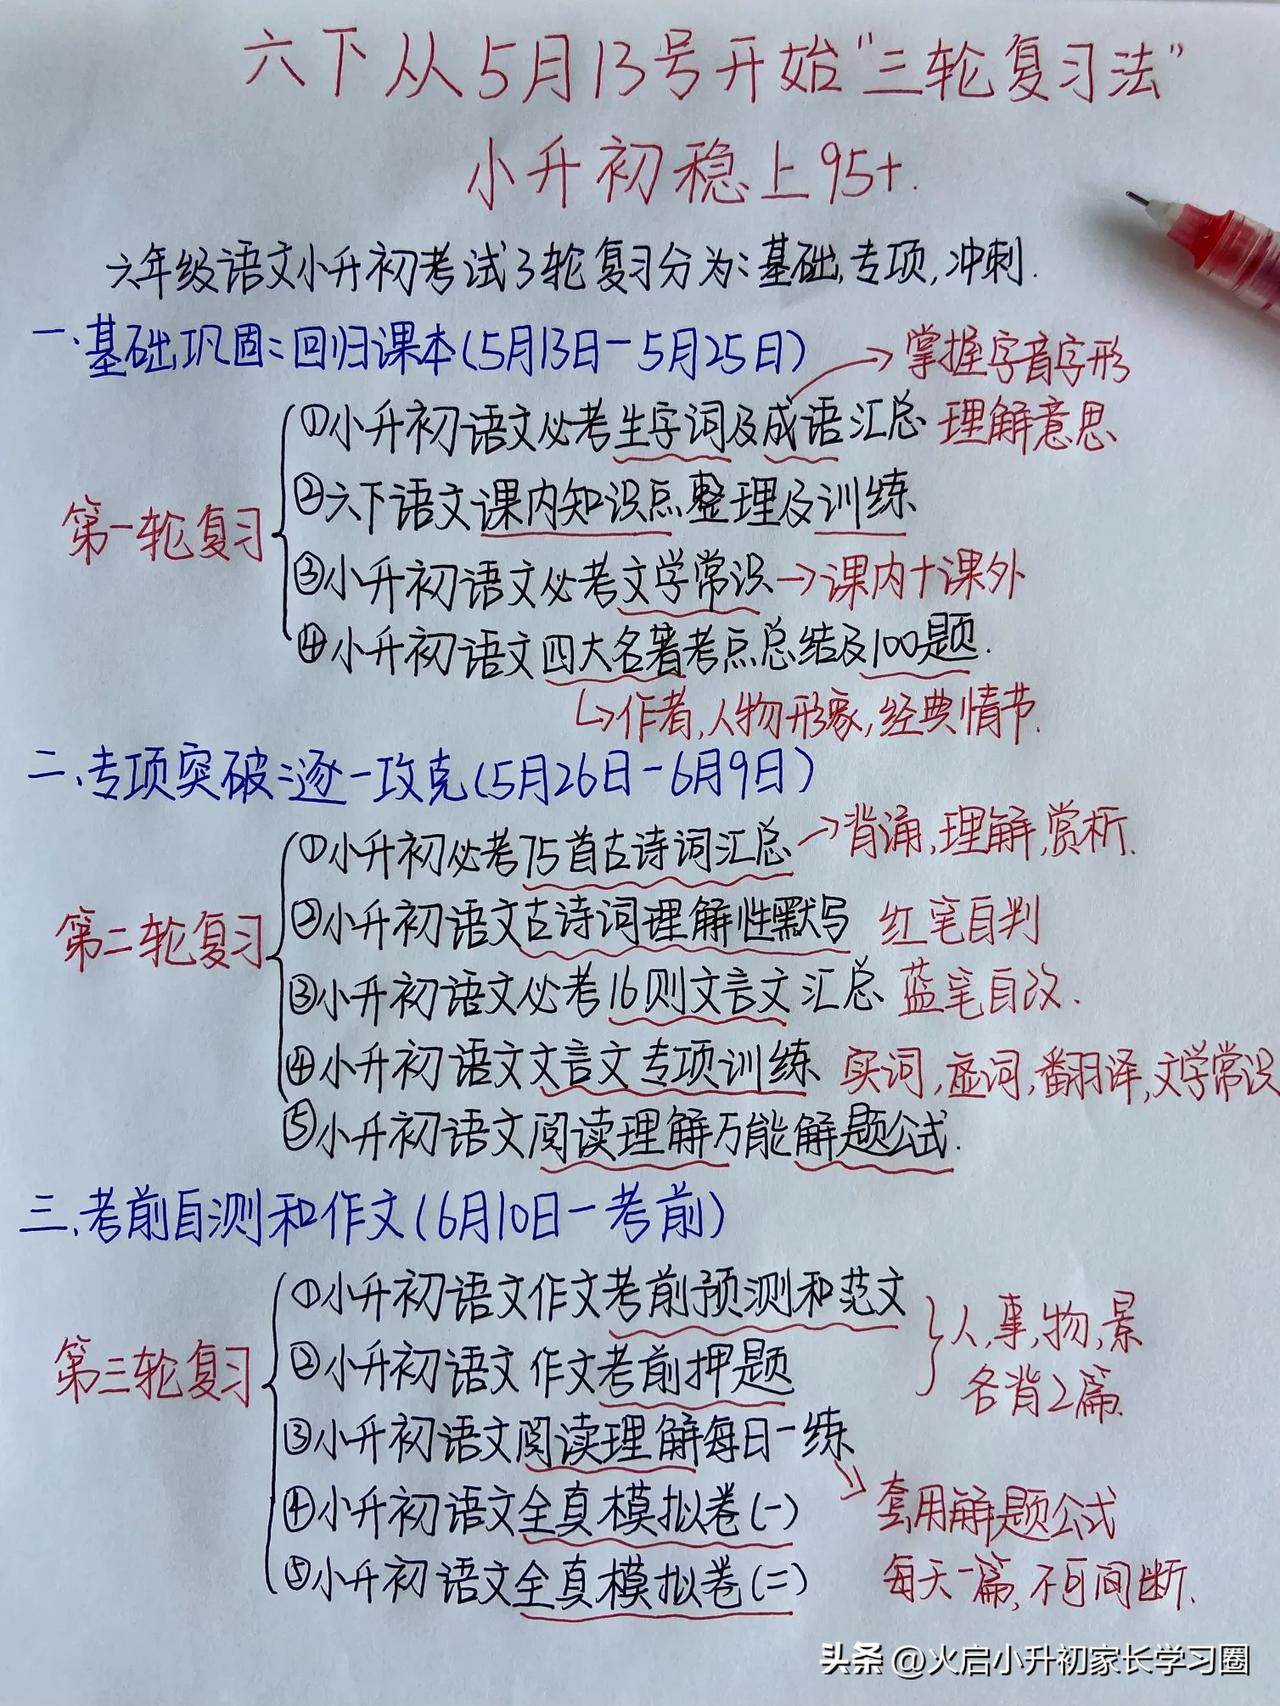 六下从5月13号开始"三轮复习法"
小升初稳上95+.
六年级语文小升初考试3轮复习分为:基础,专项,冲刺.
一、基础巩固:回归课本(5月13日-5月25日)
→掌握字音字形
理解意思
第一轮复习
①小升初语文必考生字词及成语汇总
②六下语文课内知识点整理及训练
③小升初语文必考文学常识→课内+课外
④小升初语文四大名著考点总结及100题.
↳作者,人物形象,经典情节.
二、专项突破:逐一攻克(5月26日-6月9日)
第二轮复习
①小升初必考75首古诗词汇总→背涌,理解,赏析.
②小升初语文古诗词理解性默写 红笔自判
③小升初语文必考16则文言文汇总 蓝笔自改.
④小升初语文文言文专项训练 实词,虚词,翻译,文学常识
⑤小升初语文阅读理解万能解题公式.
三、考前自测和作文(6月10日-考前)
第三轮复习
①小升初语文作文考前预测和范文
②小升初语文作文考前押题
}人,事,物,景
各背2篇.
③小升初语文阅读理解每日一练
④小升初语文全真模拟卷(一)
⑤小升初语文全真模拟卷(二)
→套用解题公式
每天一篇,不可间断.
头条@火启小升初家长学习圈